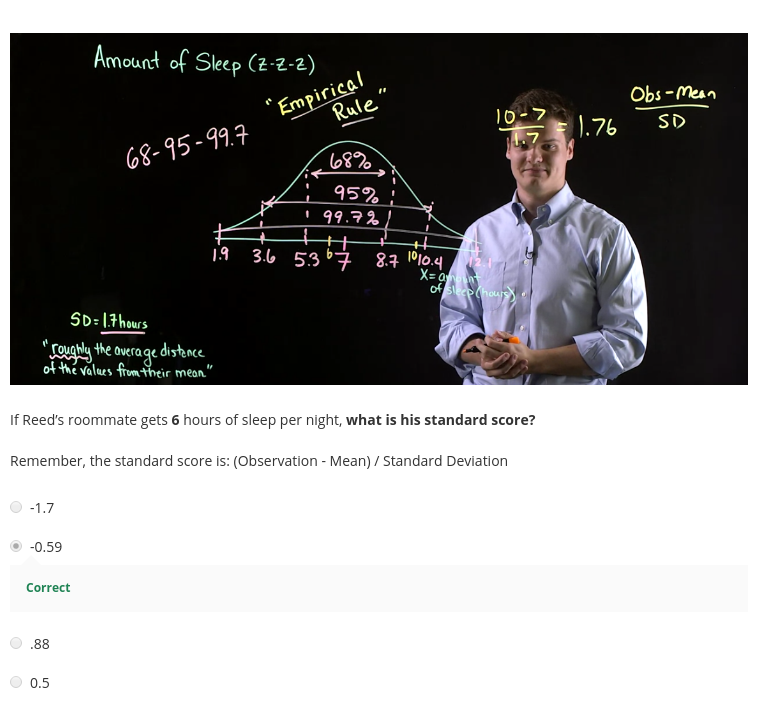 Amount of Sleep (Z-Z-Z)
"Empirical
Rule"
68-95-99.7
Obs-Mean
SD
10-7
1.7
= 1.76
68%
95%
99.7%
1.9 3.6 5.3 6 7 8.7 10 10.4 12.1
X= amount
of sleep (hours)
SD=1.7 hours
"roughly the average distance
of the values from their mean."
If Reed’s roommate gets 6 hours of sleep per night, what is his standard score?
Remember, the standard score is: (Observation - Mean) / Standard Deviation
-1.7
-0.59
Correct
.88
0.5